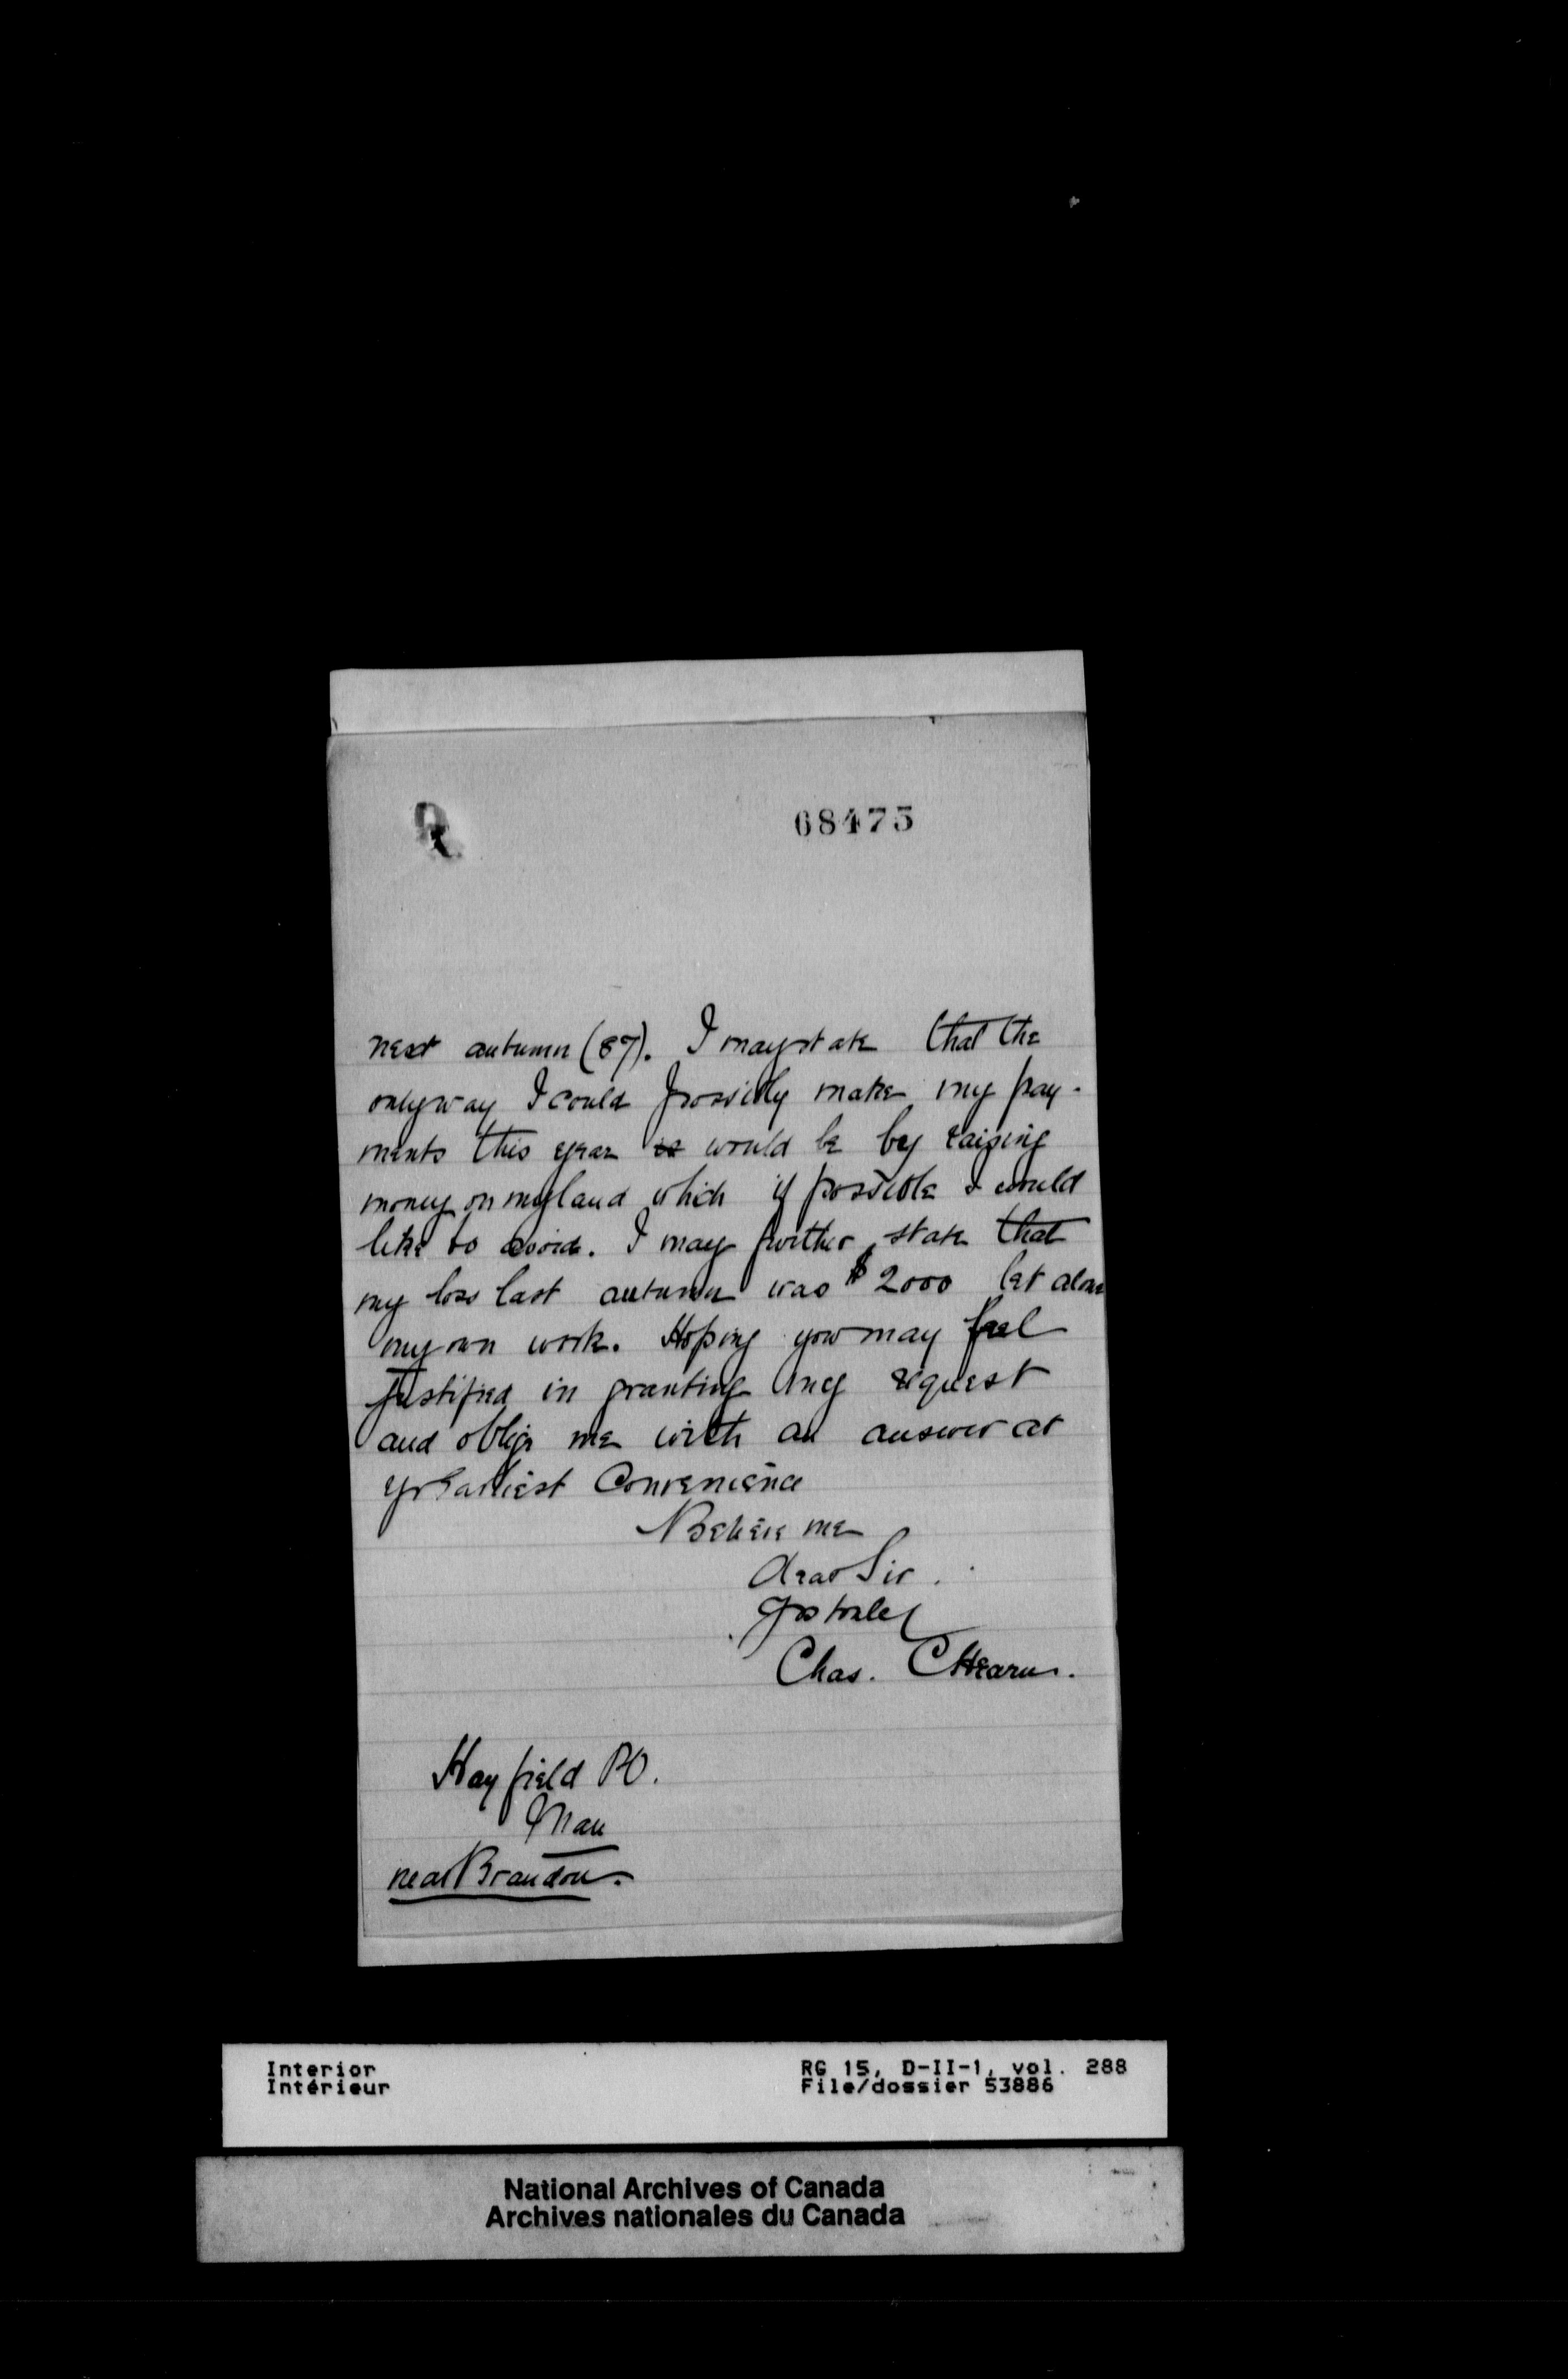 68475
next autumn (87). I may state that the
only way I could possibly make my pay-
ments this year is would be by raising
money on my land which if possible I would
like to avoid. I may further state that
my loss last autumn was $2000 let alone
my own work. Hoping you may feel
justified in granting my request
and oblige me with an answer at
yr earliest Convenience
Believe me
dear Sir.
yrs truly
Chas. C Hearn.
Hayfield PO.
Man
near Brandon.
Interior RG 15, D-II-1, vol. 288
Intérieur File/dossier 53886
National Archives of Canada
Archives nationales du Canada